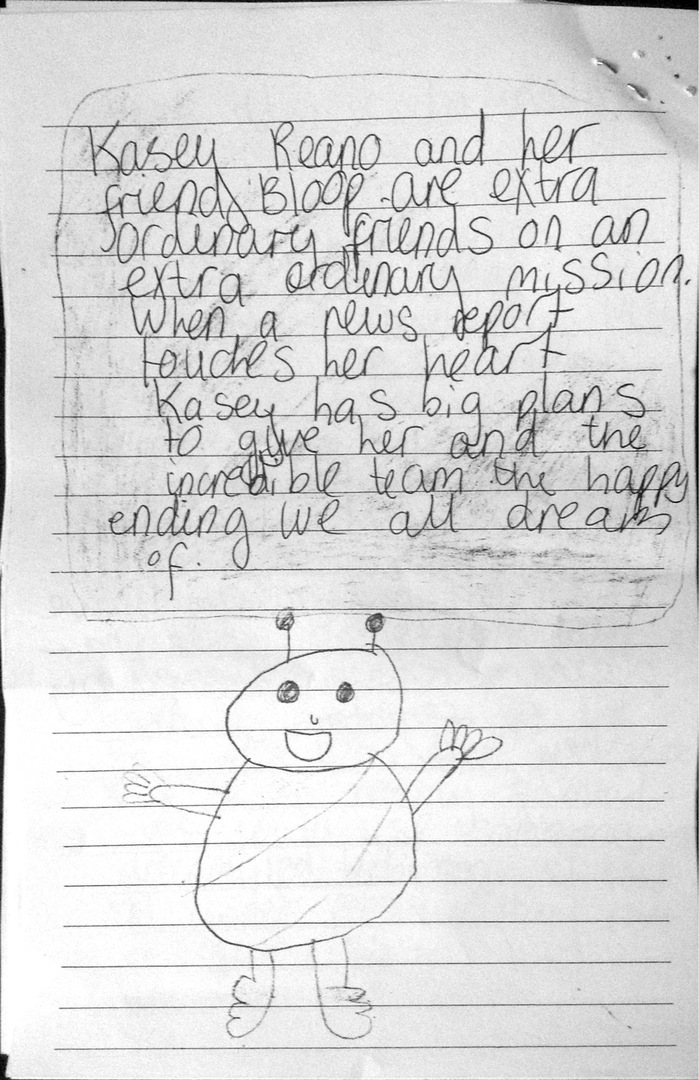 Kasey Reano and her
friend Bloop are extra
ordinary friends on an
extra ordinary mission.
When a news report
touches her heart
Kasey has big plans
to give her and the
incredible team the happy
ending we all dream
of.